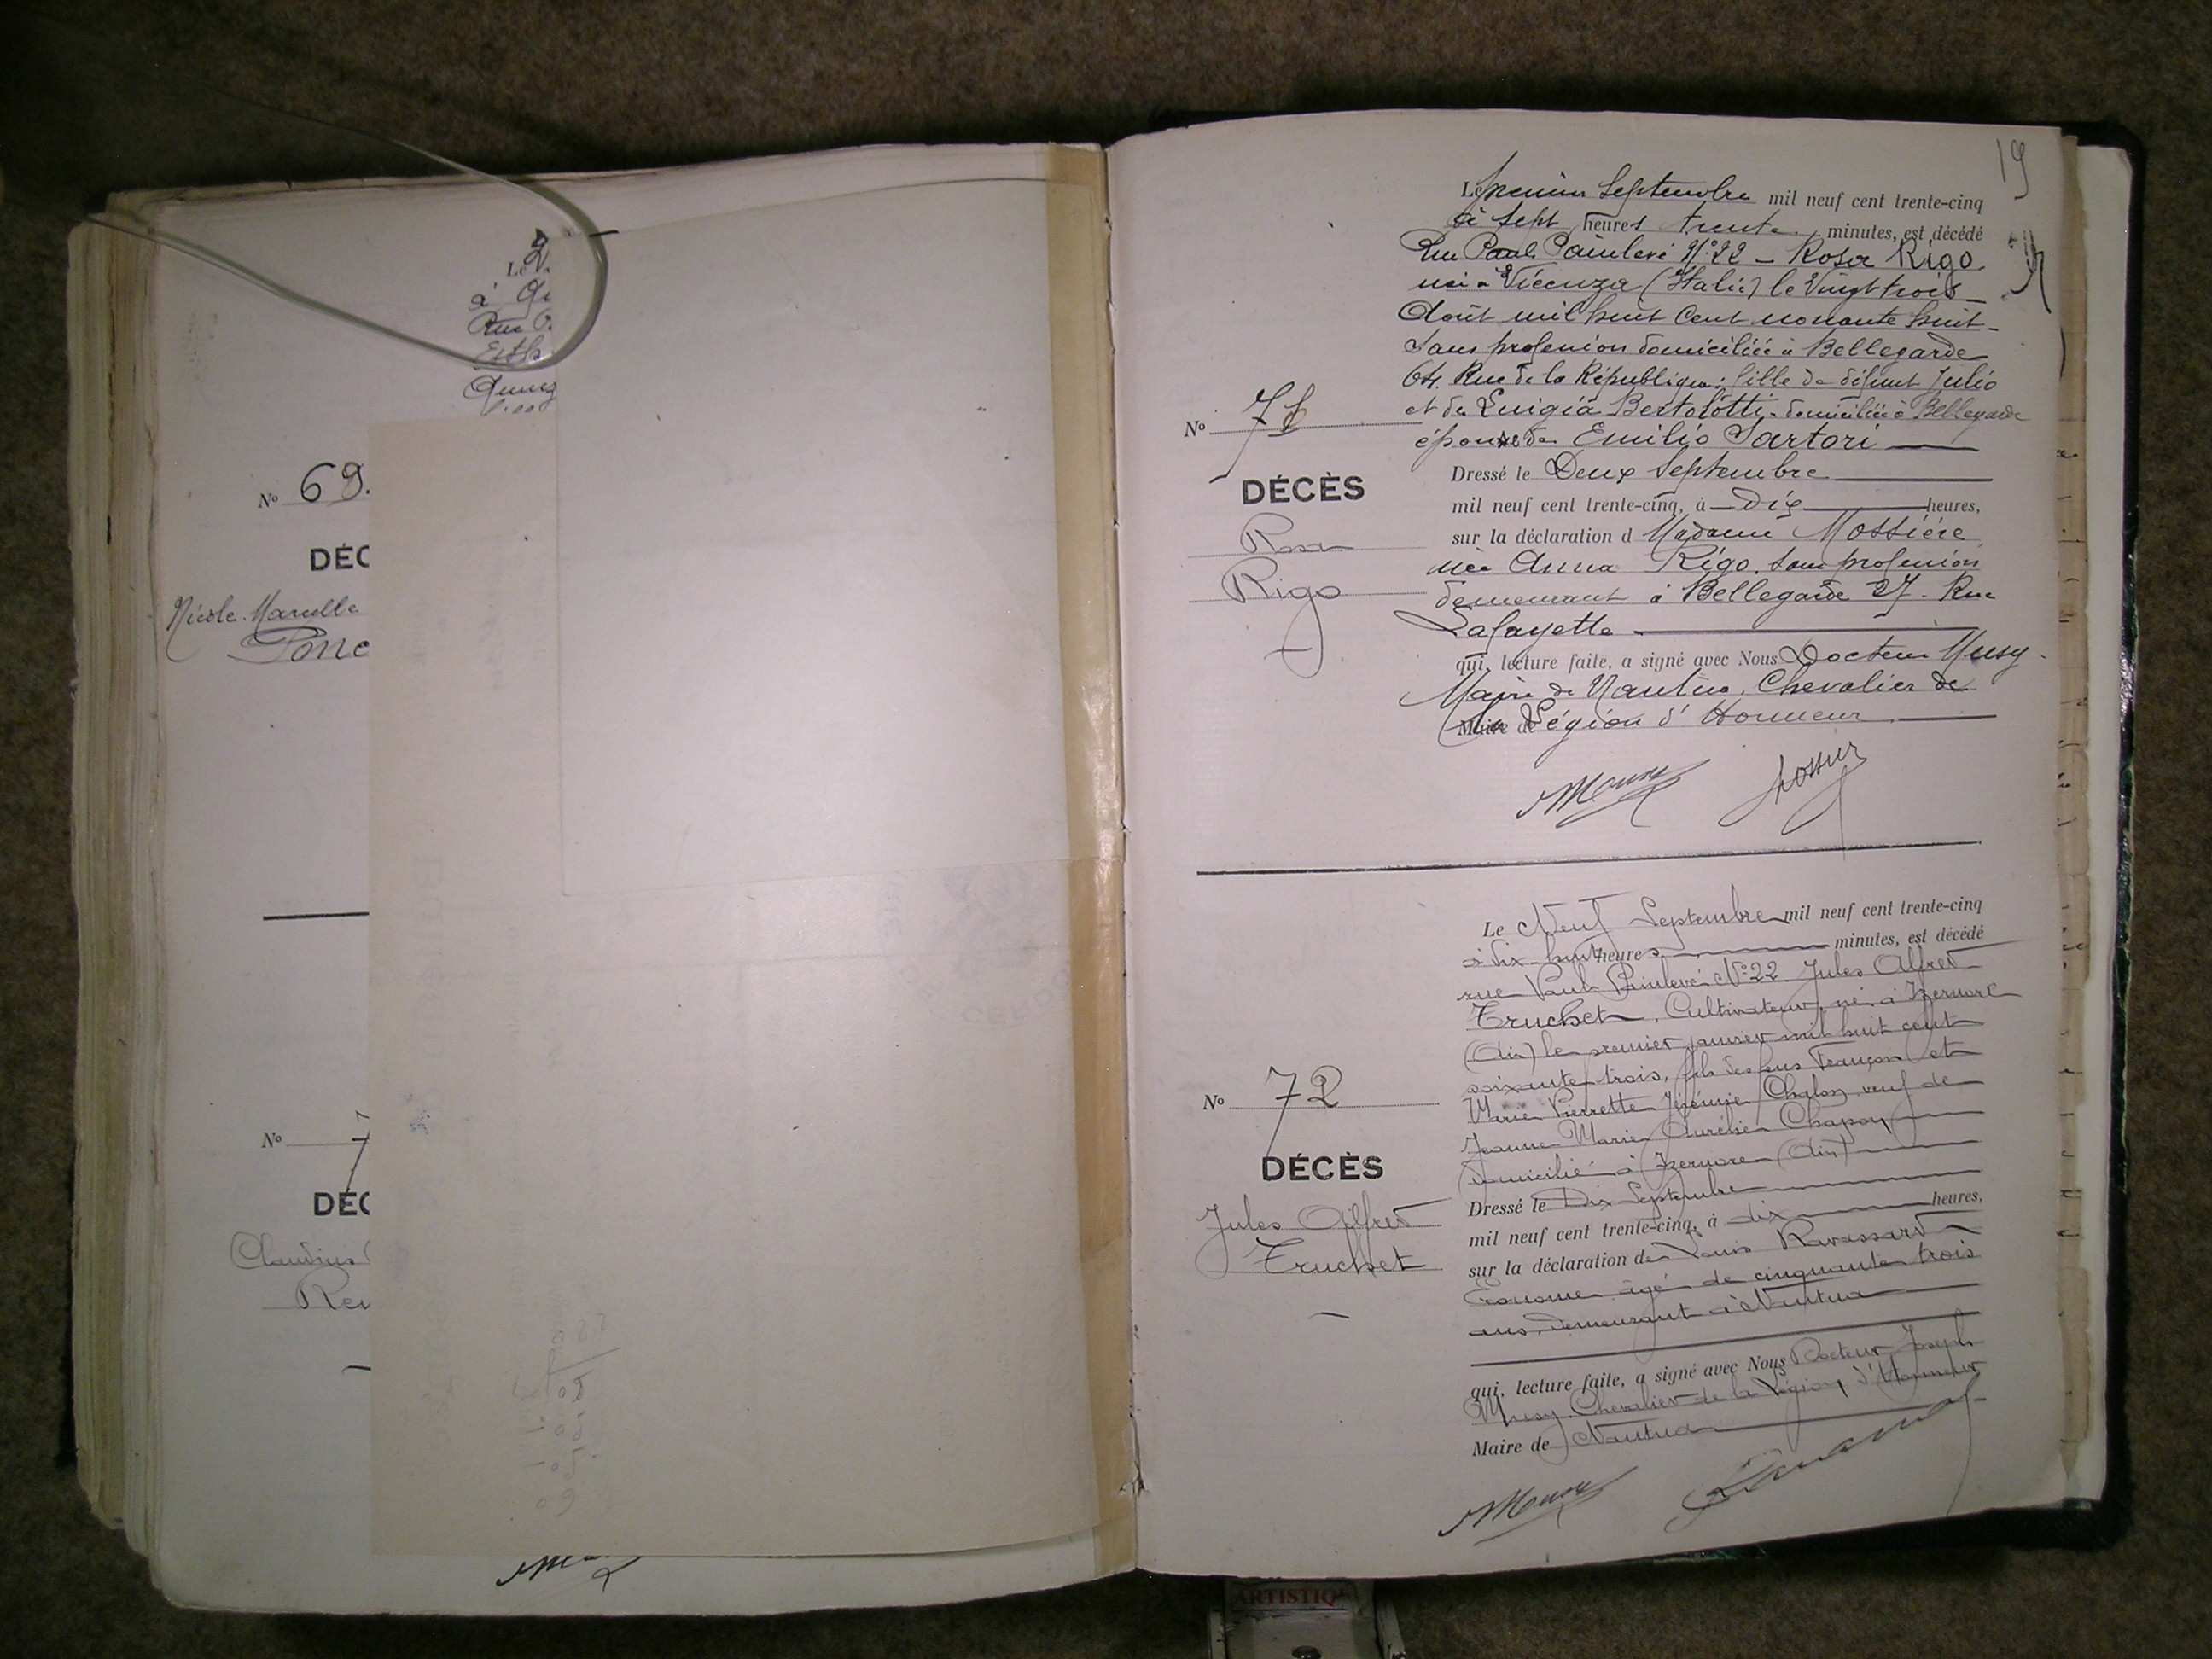 Le
à
Rue
Esth
Annez
No 69.
DÉC
Nicole Marcelle
Ponc
No 7
DÉC
Claudius
Rey
19
Le premier Septembre mil neuf cent trente-cinq
à Sept heures trente minutes, est décédé
Rue Paul Painlevé N°22 - Rosa Rigo.
née à Vicenza (Italie) le Vingt trois
Août mil huit Cent nonante huit
Sans profession domiciliée à Bellegarde
64. Rue de la République: fille de défunt Julio
et de Luigia Bertolotti. domiciliée à Bellegarde
épouse de Emilio Sartori
No 71
DÉCÈS
Rosa
Rigo
Dressé le Deux Septembre
mil neuf cent trente-cinq, à Dix heures,
sur la déclaration d Madame Mossière
née Anna Rigo. sans profession
demeurant à Bellegarde 27. Rue
Lafayette
qui, lecture faite, a signé avec Nous Docteur Musy
Maire de Nantua. Chevalier de
Maire de La Légion d'Honneur
Le Neuf Septembre mil neuf cent trente-cinq
à dix huit heures minutes, est décédé
rue Paul Painlevé N°22 Jules Alfred
Truchet, Cultivateur, né à Izernore
(Ain) le premier janvier mil huit cent
soixante trois, fils des feus François et
Marie Pierrette Chalon veuf de
Jeanne Marie Aurélie Chapoy
domicilié à Izernore (Ain)
No 72
DÉCÈS
Jules Alfred
Truchet
Dressé le Dix Septembre
mil neuf cent trente-cinq, à dix heures,
sur la déclaration de Louis Ravassard
Econome âgé de cinquante trois
ans, demeurant à Nantua
qui, lecture faite, a signé avec Nous Docteur Joseph
Musy, Chevalier de la Légion d'Honneur
Maire de Nantua
ARTISTIQ